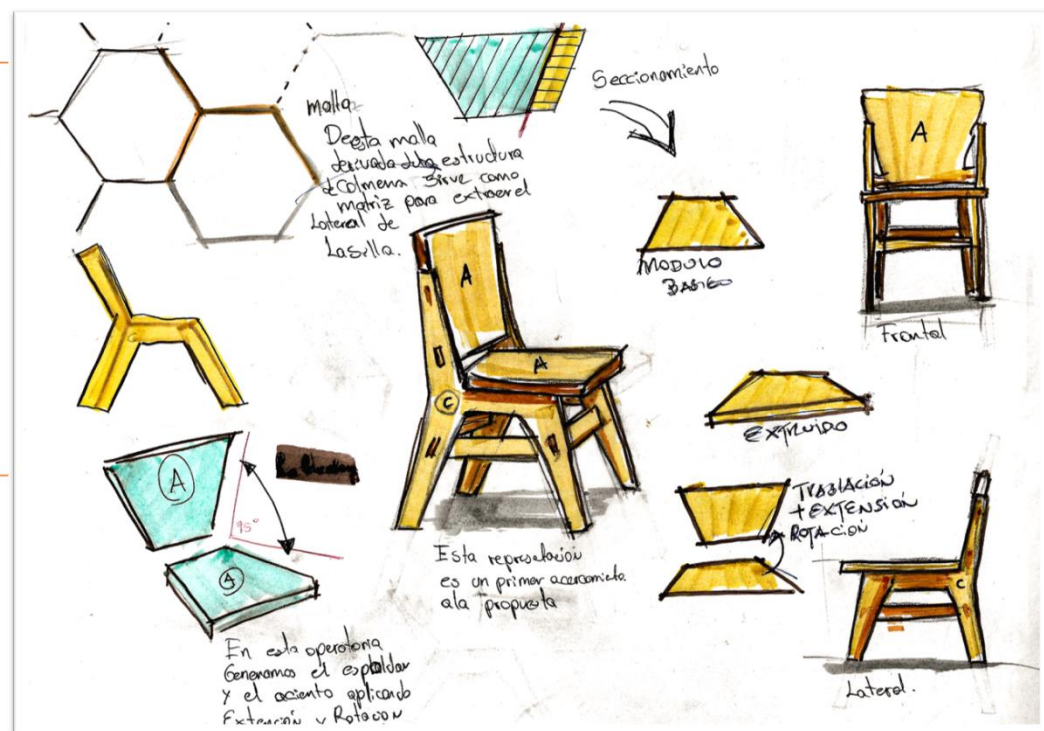 malla
Deesta malla
derivada dela estructura
de Colmena Sirve como
matriz para extraer el
Lateral de
La silla.
Seccionamiento
MODULO
BASICO
A
Frontal
A
A
C
EXTRUIDO
A
95°
A
TRASLACIÓN
+ EXTENSIÓN
ROTACIÓN
Esta represetacion
es un primer acercamieto.
ala propuesta
C
Lateral.
En esta operatoria
Generamos el espaldar
y el aciento aplicando
Extención y Rotacion